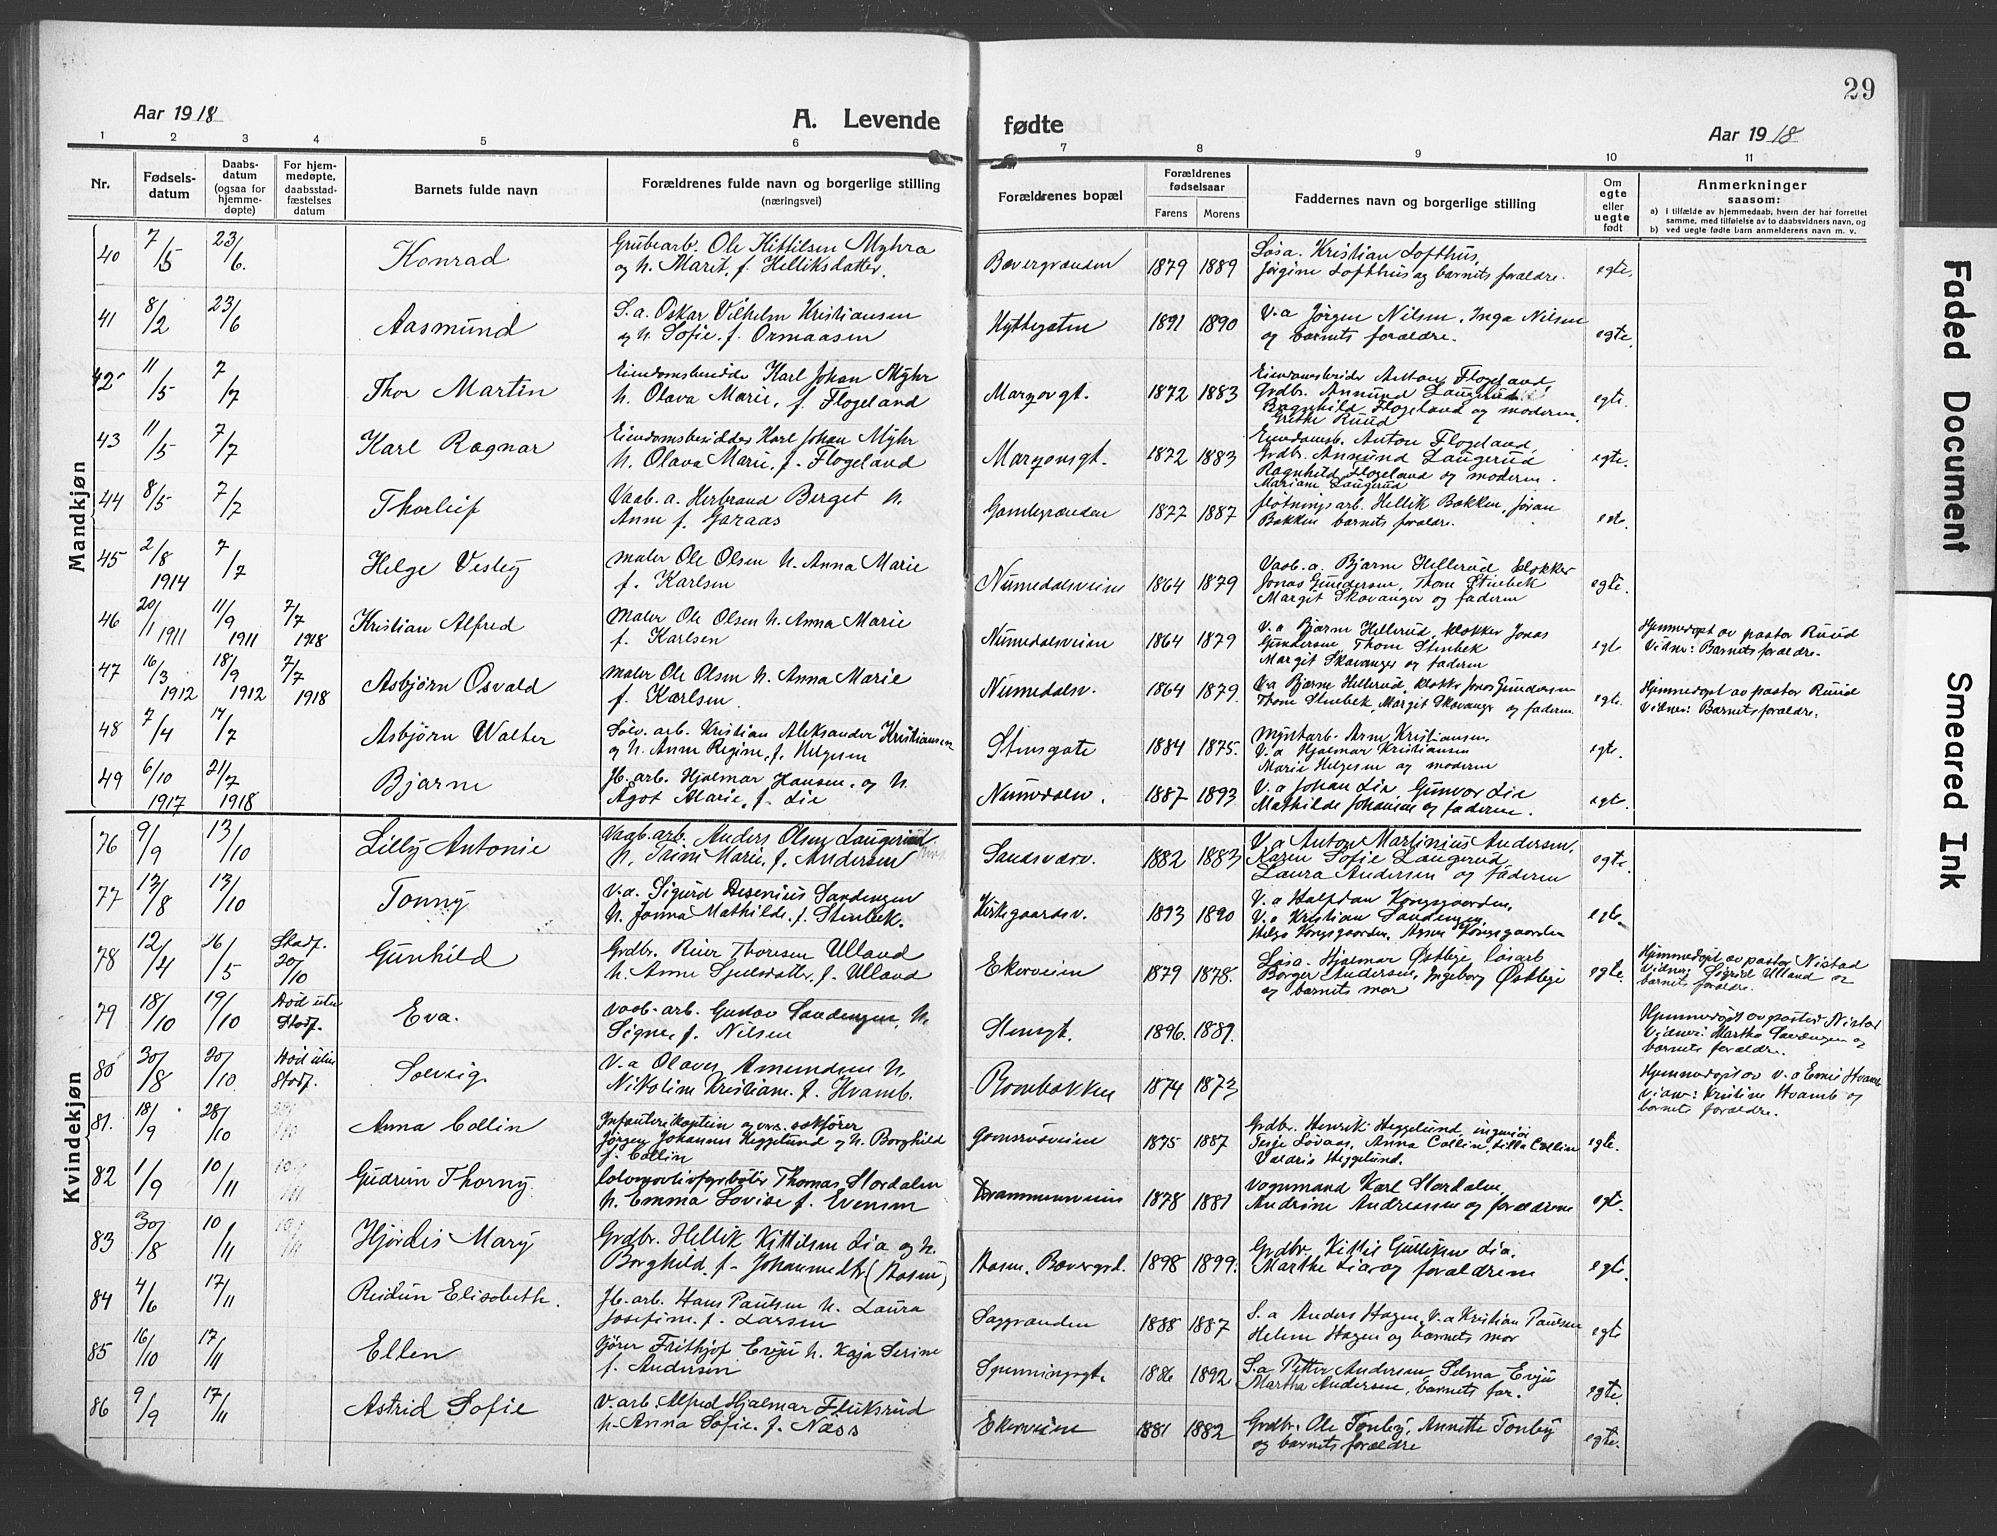 29
Aar 1918
A. Levende fødte
Aar 1918
1 2 3 4 5 6 7 8 9 10 11
Nr.
Fødsels-
datum
Daabs-
datum
(ogsaa for
hjemme-
døpte)
For hjem-
medøpte,
daabsstad-
fæstelses
datum
Barnets fulde navn
Forældrenes fulde navn og borgerlige stilling
(næringsvei)
Forældrenes bopæl
Forældrenes
fødselsaar
Farens Morens
Faddernes navn og borgerlige stilling
Om
egte
eller
uegte
født
Anmerkninger
saasom:
a) i tilfælde av hjemmedaab, hvem der har forrettet
samme, med tilføielse av to daabsvidners navn, og
b) ved uegte fødte barn anmelderens navn m. v.
Mandkjøn
40 7/5 23/6. Konrad Grubearb. Ole Kittilsen Myhra Bævergrænden 1879 1889 Løsa. Kristian Lofthus, egte.
og h. Marit, f. Helliksdatter. Jørgine Lofthus og barnets forældre.
41 8/2 23/6 Aasmund S.a. Oskar Vilhelm Kristiansen Hyttegaten 1891 1890 V.a Jørgen Nilsen, Inga Nilsen egte.
og h. Sofie, f. Ormaasen og barnets forældre.
42 11/5 7/7 Thor Martin Eiendomsbesidder Karl Johan Myhr 1872 1883 Eiendomsbesidder Anton Flogeland, egte.
h. Olava Marie, f. Flogeland Grdbr. Amund Laugerud
Ragnhild Flogeland og moderen,
Grethe Ruud
43 11/5 7/7 Karl Ragnar Eiendomsbesidder Karl Johan Myhr 1872 1883 Eiendomsb. Anton Flogeland, egte.
h. Olava Marie, f. Flogeland Grdbr. Amund Laugerud
Ragnhild Flogeland og moderen.
Mariane Laugerud
44 8/5 7/7 Thorleif Vaab. a. Herbrand Berget h. Gamlegrænden 1877 1887 fløtningsarb. Hellik Bakken, Jøran egte.
Anne f. Garaas Bakken barnets forældre.
45 2/8 1914 7/7 Helge Vesley Maler Ole Olsen h. Anna Marie Numedalsveien 1864 1879 Vaab. a. Bjarne Hellerud klokker egte.
f. Karlsen Jonas Gundersen, Thom Stenbek
Margit Skavanger og faderen
46 20/1 1911 11/9 1911 7/7 1918 Kristian Alfred Maler Ole Olsen h. Anna Marie Numedalsveien 1864 1879 V.a Bjarne Hellerud, klokker Jonas egte Hjemmedøpt av pastor Ruud
f. Karlsen Gundersen, Thom Stenbek Vidner: Barnets forældre.
Margit Skavanger og faderen
47 16/3 1912 18/9 1912 7/7 1918 Asbjørn Osvald Maler Ole Olsen h. Anna Marie Numedalsv. 1864 1879 V.a Bjarne Hellerud, klokker Jonas Gundersen egte. Hjemmedøpt av pastor Ruud
f. Karlsen. Thom Stenbek, Margit Skavanger og faderen Vidner: Barnets forældre.
48 7/4 14/7 Asbjørn Walter Sølv. arb. Kristian Aleksander Kristiansen Stensgate 1884 1875. Myntarb. Arne Kristiansen, egte.
og h. Anne Regine, f. Helgesen V.a Hjalmar Kristiansen
Marie Helgesen og moderen
49 6/10 1917 21/7 1918 Bjarne Jb. arb. Hjalmar Hansen, og h. Numedalsv. 1887 1893 V.a Johan Lia, Gunvor Lia egte.
Agot Marie, f. Lie Mathilde Johansen og faderen.
Kvindekjøn
76 9/9 13/10 Lilly Antonie Vaab. arb. Anders Olsen Laugerud Sandsværv. 1882 1883 V.a Anton Martinius Andersen, egte.
h. Trine Marie, f. Andersen Karen Sofie Laugerud
Laura Andersen og faderen
77 13/8 13/10 Tonny V.a. Sigurd Desenius Sandengen Kirkegaardsv. 1893 1890 V.a Halfdan Kongsgaarden, egte.
h. Jonna Mathilde, f. Stenbek. V.a Kristian Sandengen,
Helga Kongsgaarden, Agnes Kongsgaarden
78 12/4 26/5 Stadf. 20/10 Gunhild Grdbr. Reier Thoresen Ulland Ekerveien 1879 1878. Løsa. Hjalmar Østbye løsarb egte. Hjemmedøpt av pastor Nistad
h. Anne Gjulsdatter, f. Ulland Borger Andersen, Ingeborg Østbye Vidner: Sigrid Ulland og
og barnets mor barnets forældre.
79 18/10 19/10 Død uten Stadf. Eva. Vaab. arb. Gustav Sandengen, h. Stensgt. 1896. 1889. Hjemmedøpt av pastor Nistad
Signe, f. Nilsen Vidner: Martha Sandengen og
barnets forældre.
80 30/8 20/10 Død uten Stadf. Solveig V.a Olaves Amundsen h. Rombakken 1874 1873 Hjemmedøpt av V.a Emil Hvamb
Nikoline Kristiane, f. Hvamb. Vidner: Kristine Hvamb og
barnets forældre.
81. 18/9 28/10 Anna Collin Infanterikaptein og o.r. sakfører Gomsrudveien 1875 1887 Grdbr. Henrik Heggelund, ingeniør egte.
Jørgen Johannes Heggelund og h. Borghild Terje Lovaas, Anna Collin, Lilla Collin
f. Collin Valdris Heggelund.
82 1/9 10/11 Gudrun Thorny Lokomotivfyrbøter Thomas Stordalen Drammensveien 1878 1881 Vognmand Karl Stordalen, egte.
h. Emma Lovise f. Evensen Andrine Andreassen og forældrene
83 30/8 10/11 Hjørdis Mary Grdbr. Hellik Kittilsen Lia og h. Aasen, Bævergrd. 1898 1899. Grdbr. Kittil Gulliksen Lia, egte.
Borghild, f. Johannesdtr. (Aasen) Marthe Lia og forældrene
84 4/6 17/11 Reidun Elisabeth. Jb. arb. Hans Paulsen h. Laura Saggrænden 1888 1887 S.a Anders Hagen, V.a Kristian Paulsen egte
Josefine f. Larsen Helene Hagen og barnets mor
85 16/10 17/11 Ellen Gjører Frithjof Evju h. Kaja Serine Spenningsgt. 1886 1892 S.a Petter Andersen, Selma Evju egte.
f. Andersen Martha Andersen, barnets far.
86 9/9 17/11 Astrid Sofie V. arb. Alfred Hjalmar Fluksrud Ekerveien 1881 1882 Grdbr. Ole Tonby, Annette Tonby egte.
h. Anna Sofie, f. Næss og barnets forældre
Faded Document
Smeared Ink